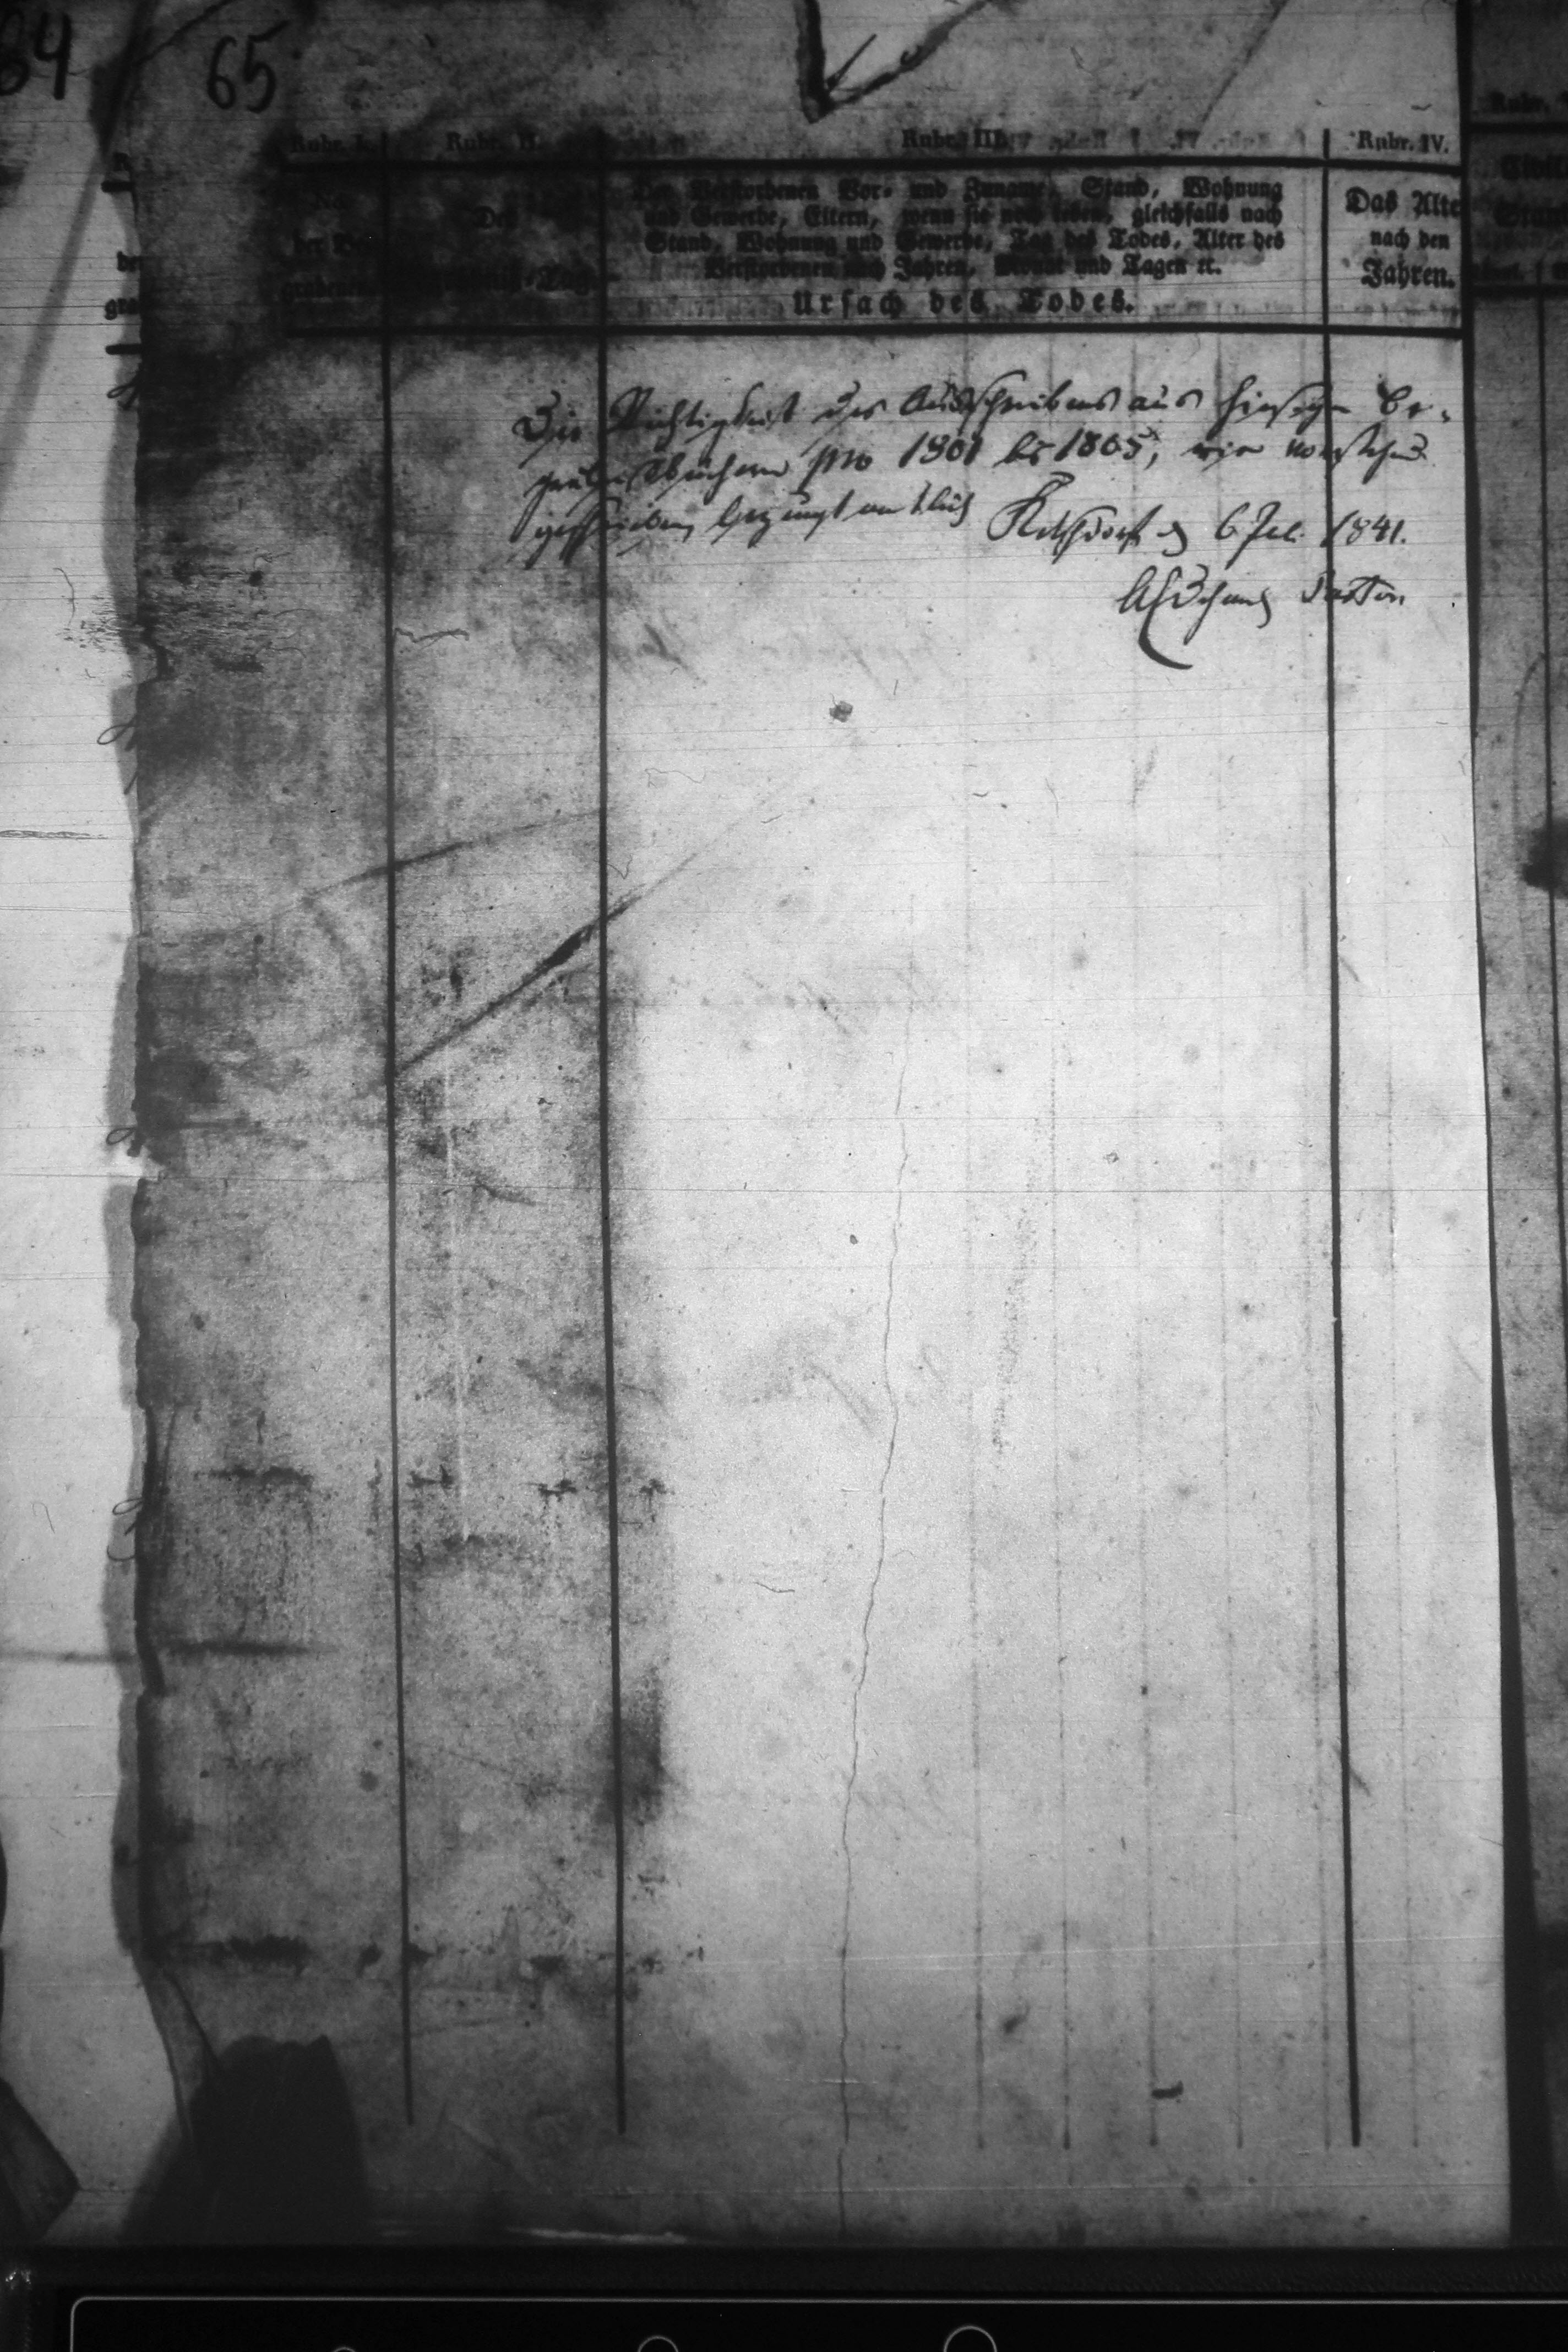 64 65
Rubr. I. Rubr. II. Rubr. III. Rubr. IV.
No.
Des
Der Verstorbenen Vor- und Zuname, Stand, Wohnung
und Gewerbe, Eltern, wenn sie noch leben, gleichfalls nach
Stand, Wohnung und Gewerbe, Tag des Todes, Alter des
Verstorbenen nach Jahren, Monat und Tagen ꝛc.
Ursach des Todes.
Das Alte
nach den
Jahren.
Die Richtigkeit des Ausschreibens aus hiesigen Be-
gräbnißbüchern pro 1801 bis 1805, wie vorstehend
geschrieben bezeugt amtlich
6 1841.
Pastor